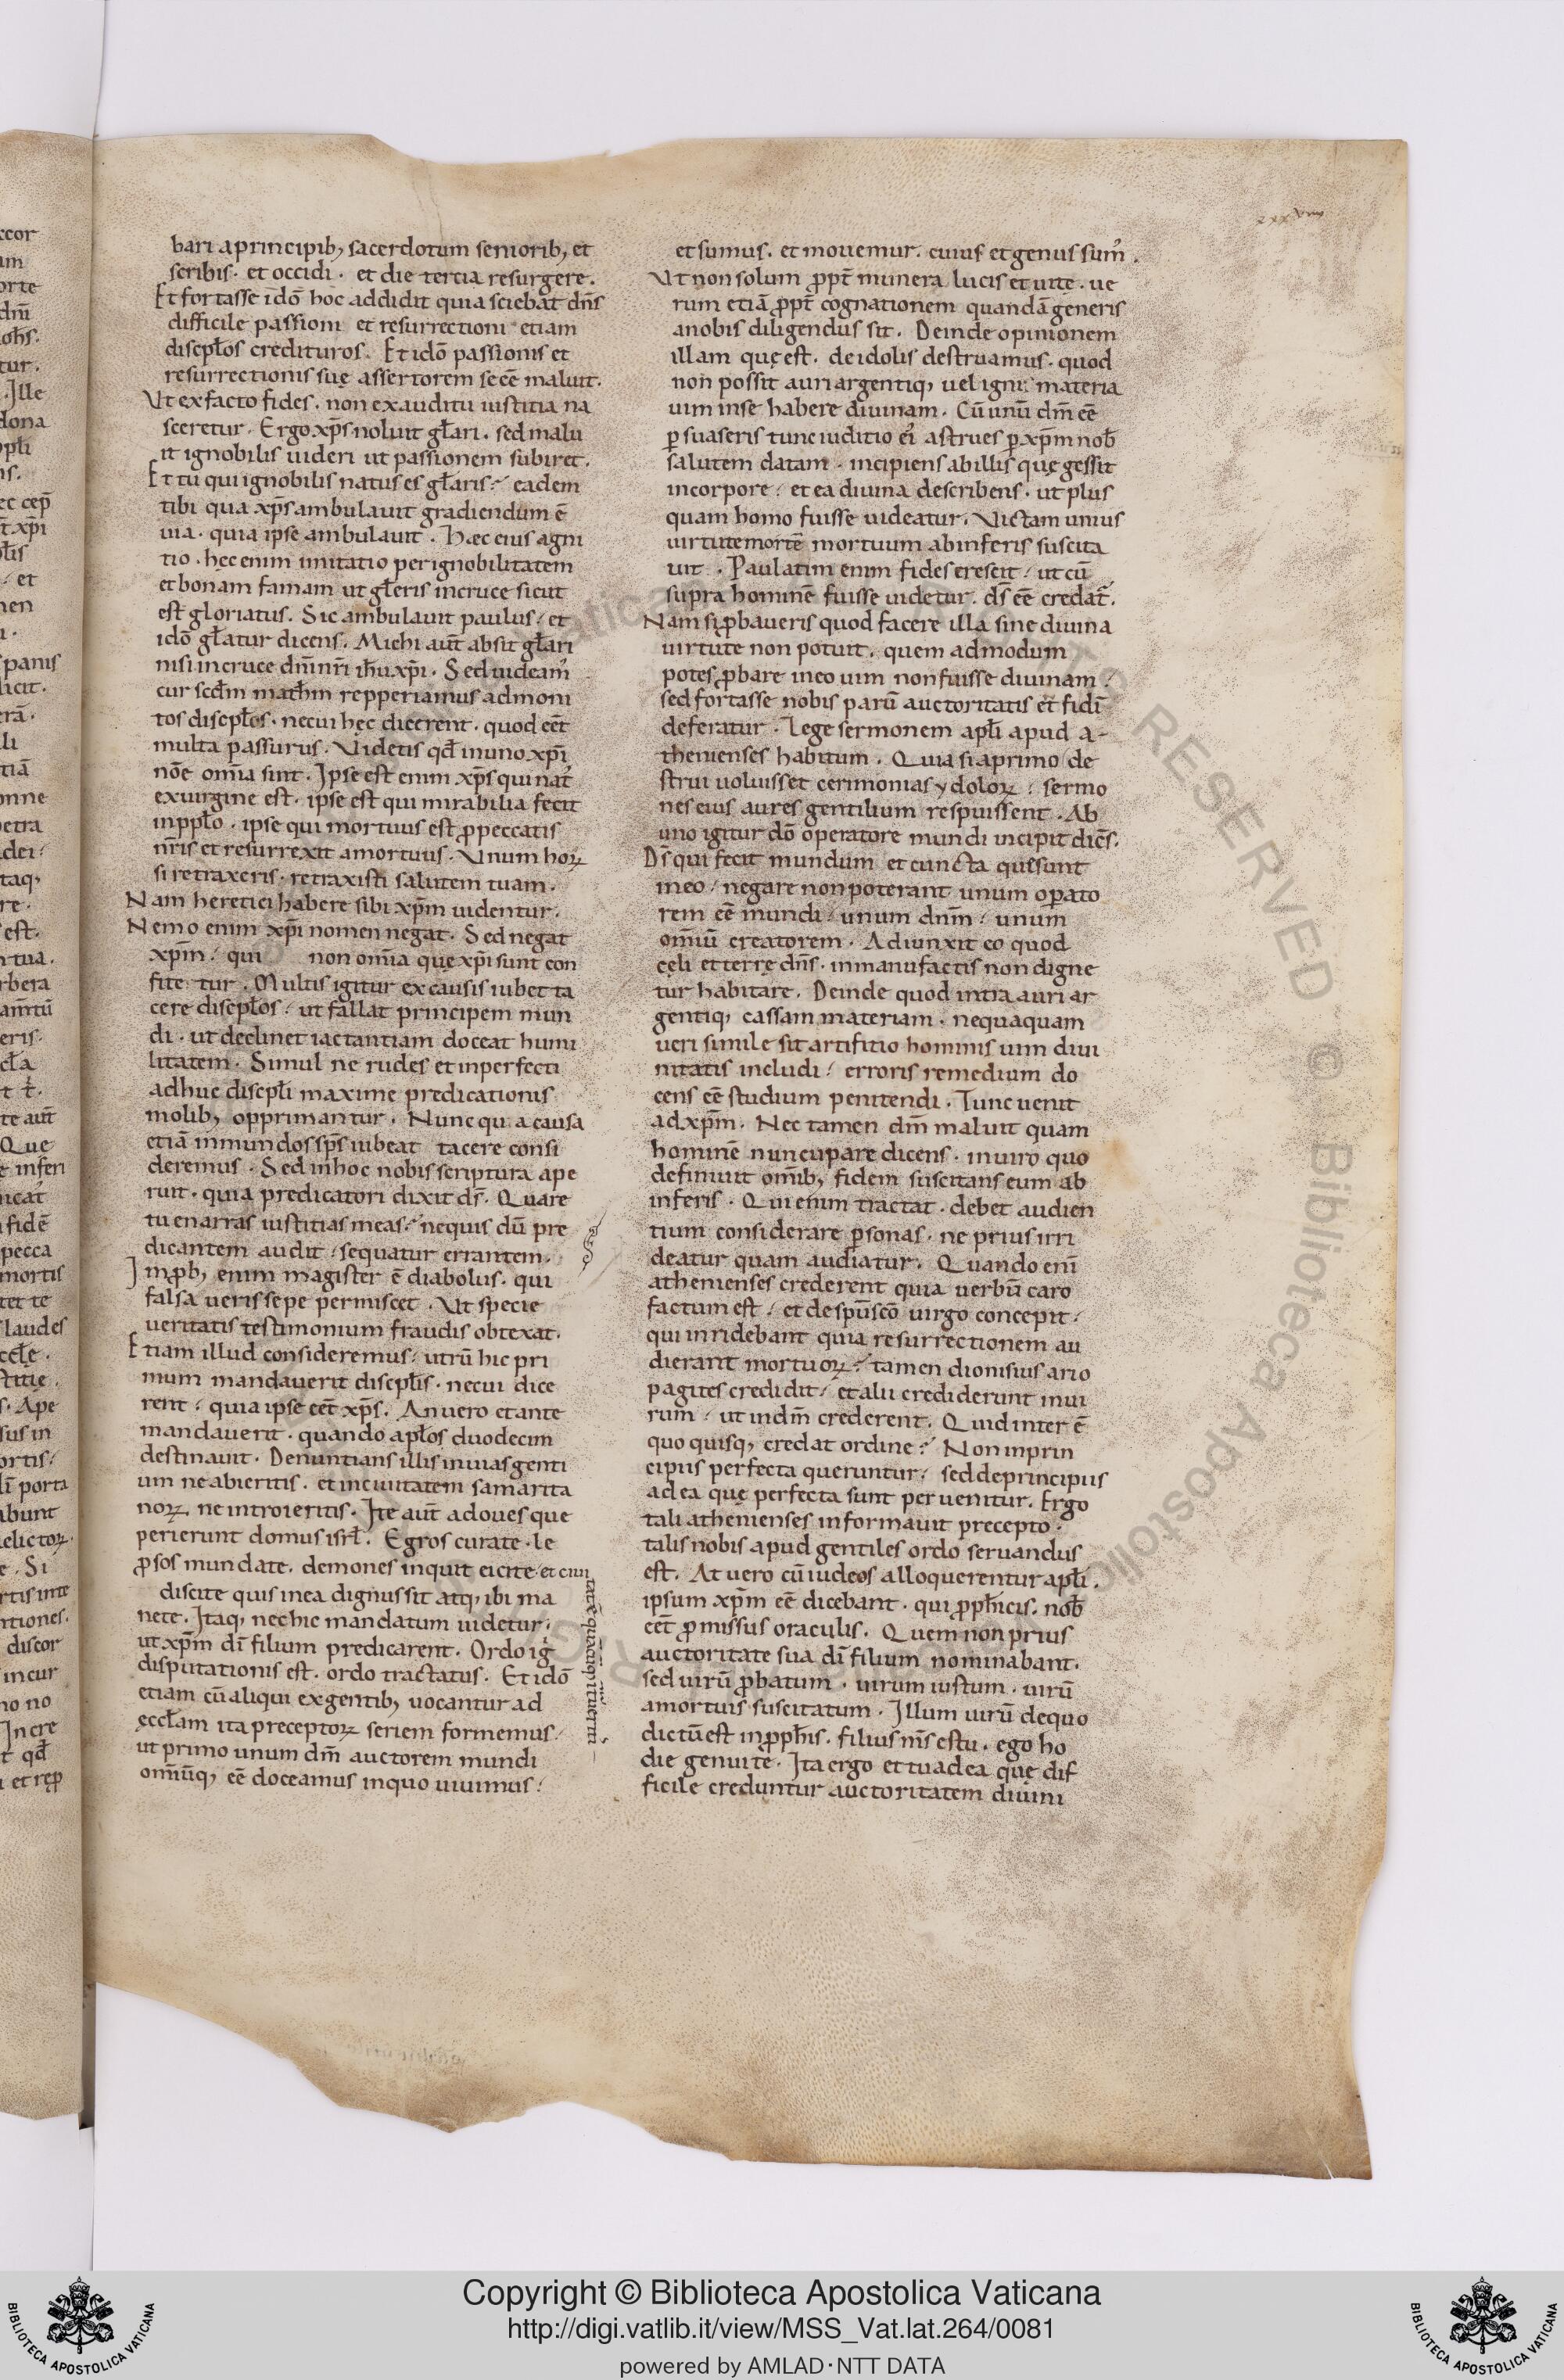 xxxviiii
bari a principib; sacerdotum seniorib; et
scribis · et occidi · et die tertia resurgere .
Et fortasse idõ hoc addidit quia sciebat dñs
difficile passioni et resurrectioni etiam
discipłos credituros . Et idõ passionis et
resurrectionis suę assertorem se eẽ maluit .
Ut ex facto fides . non ex auditu iustitia na
sceretur . Ergo xp̃s noluit gła̅ri . sed malu
it ignobilis uideri ut passionem subiret .
Et tu qui ignobilis natus es głaris ? eadem
tibi qua xp̃s ambulauit gradiendum ẽ
uia . quia ipse ambulauit . Hæc eius agni
tio . hęc enim imitatio per ignobilitatem
et bonam famam ut głeris in cruce sicut
est gloriatus . Sic ambulauit paulus / et
idõ głatur dicens . Michi aut̃ absit głari
nisi in cruce dñi nr̃i ih̃u xp̃i . Sed uideam᾿
cur scđm math̃m repperiamus admoni
tos discipłos . ne cui hęc dicerent . quod eẽt
multa passurus . Videtis qđ in uno xp̃i
nõe om̃ia sint . Ipse est enim xp̃s qui nat᾿
ex uirgine est . ipse est qui mirabilia fecit
in pp̃lo . ipse qui mortuus est ꝓ peccatis
nr̃is et resurrexit a mortuis . Unum hoꝝ
si retraxeris . retraxisti salutem tuam .
Nam heretici habere sibi xp̃m uidentur .
Nemo enim xp̃i nomen negat . Sed negat
xp̃m / qui non om̃ia quę xp̃i sunt con
fite tur . Multis igitur ex causis iubet ta
cere discipłos / ut fallat principem mun
di . ut declinet iactantiam doceat humi
litatem . Simul ne rudes et inperfecti
adhuc discipłi maxime predicationis
molib; opprimantur . Nunc qu a causa
etiã inmundos sp̃s iubeat tacere consi
deremus . Sed in hoc nobis scriptura ape
ruit . quia predicatori dixit ds̃ . Quare
tu enarras iustitias meas ? ne quis dũ pre
dicantem audit / sequatur errantem .
Inꝓb; enim magister ẽ diabolus . qui
falsa ueris sepe permiscet . Ut specie
ueritatis testimonium fraudis obtexat .
Etiam illud consideremus / utrũ hic pri
mum mandauerit discipłis . ne cui dice
rent / quia ipse eẽt xp̃s . An uero et ante
mandauerit . quando apłos duodecim
destinauit . Denuntians illis in uias genti
um ne abieritis . et in ciuitatem samarita
noꝝ ne introieritis . Ite aut̃ ad oues que
perierunt domus isrł . Egros curate . le
ꝓsos mundate . demones inquit eicite . et in ciui
tatẽ quãcũq; ĩtueritis
discite quis in ea dignus sit atq; ibi ma
nete . Itaq; nec hic mandatum uidetur .
ut xp̃m dĩ filium predicarent . Ordo ig̃
disputationis est . ordo tractatus . Et idõ
etiam cũ aliqui ex gentib; uocantur ad
ęccłam ita preceptoꝝ seriem formemus /
ut primo unum dm̃ auctorem mundi
om̃iũq; eẽ doceamus in quo uiuimus /
et sumus . et mouemur . cuius et genus sum᾿ .
Ut non solum ꝓpt̃ munera lucis et uitę . ue
rum etiã ꝓpt̃ cognationem quandã generis
a nobis diligendus sit . Deinde opinionem
illam quę est . de idolis destruamus . quod
non possit auri argentiq; uel igni materia
uim in se habere diuinam . Cũ unũ dm̃ eẽ
ꝑsuaseris tunc iuditio ei᾿ astrues ꝑ xp̃m nob̃
salutem datam . incipiens ab illis quę gessit
in corpore / et ea diuina describens . ut plus
quam homo fuisse uideatur . Victam unius
uirtute mortẽ mortuum ab inferis suscita
uit . Paulatim enim fides crescit / ut cũ
supra hominẽ fuisse uidetur . ds̃ eẽ credat᷑ .
Nam si ꝓbaueris quod facere illa sine diuina
uirtute non potuit . quem admodum
potes ꝓbare in eo uim non fuisse diuinam ?
sed fortasse nobis parũ auctoritatis et fidĩ
deferatur . Lege sermonem apłi apud a-
thenienses habitum . Quia si a primo de
strui uoluisset cerimonias ydoloꝝ / sermo
nes eius aures gentilium respuissent . Ab
uno igitur dõ operatore mundi incipit dicẽs .
Ds̃ qui fecit mundum et cuncta quę sunt
in eo / negare non poterant unum oꝑato
rem eẽ mundi / unum dnm̃ / unum
om̃iũ creatorem . Adiunxit eo quod
cęli et terrę dñs . in manufactis non digne
tur habitare . Deinde quod intra auri ar
gentiq; cassam materiam . nequaquam
ueri simile sit artifitio hominis uim diui
nitatis includi / erroris remedium do
cens eẽ studium penitendi . Tunc uenit
ad xp̃m . Nec tamen dm̃ maluit quam
hominẽ nuncupare dicens . in uiro quo
definiuit om̃ib; fidem suscitans eum ab
inferis . Qui enim tractat . debet audien
tium considerare ꝑsonas . ne prius irri
deatur quam audiatur . Quando enĩ
athenienses crederent quia uerbũ caro
factum est / et de spũ scõ uirgo concepit /
qui inridebant quia resurrectionem au
dierant mortuoꝝ ? tamen dionisius ario
pagites credidit / et alii crediderunt in ui
rum / ut in dm̃ crederent . Quid inter ẽ
quo quisq; credat ordine ? Non in prin
cipiis perfecta queruntur / sed de principiis
ad ea quę perfecta sunt peruenitur . Ergo
tali athenienses informauit precepto .
talis nobis apud gentiles ordo seruandus
est . At uero cũ iudeos alloquerentur apłi .
ipsum xp̃m eẽ dicebant . qui ꝓph̃icis . nob̃
eẽt ꝓmissus oraculis . Quem non prius
auctoritate sua dĩ filium nominabant .
sed uirũ ꝓbatum . uirum iustum . uirũ
a mortuis suscitatum . Illum uirũ de quo
dictũ est in ꝓph̃is . filius m̃s es tu . ego ho
die genui te . Ita ergo et tu ad ea quę dif
ficile creduntur auctoritatem diuini
Copyright © Biblioteca Apostolica Vaticana
http://digi.vatlib.it/view/MSS_Vat.lat.264/0081
powered by AMLAD·NTT DATA